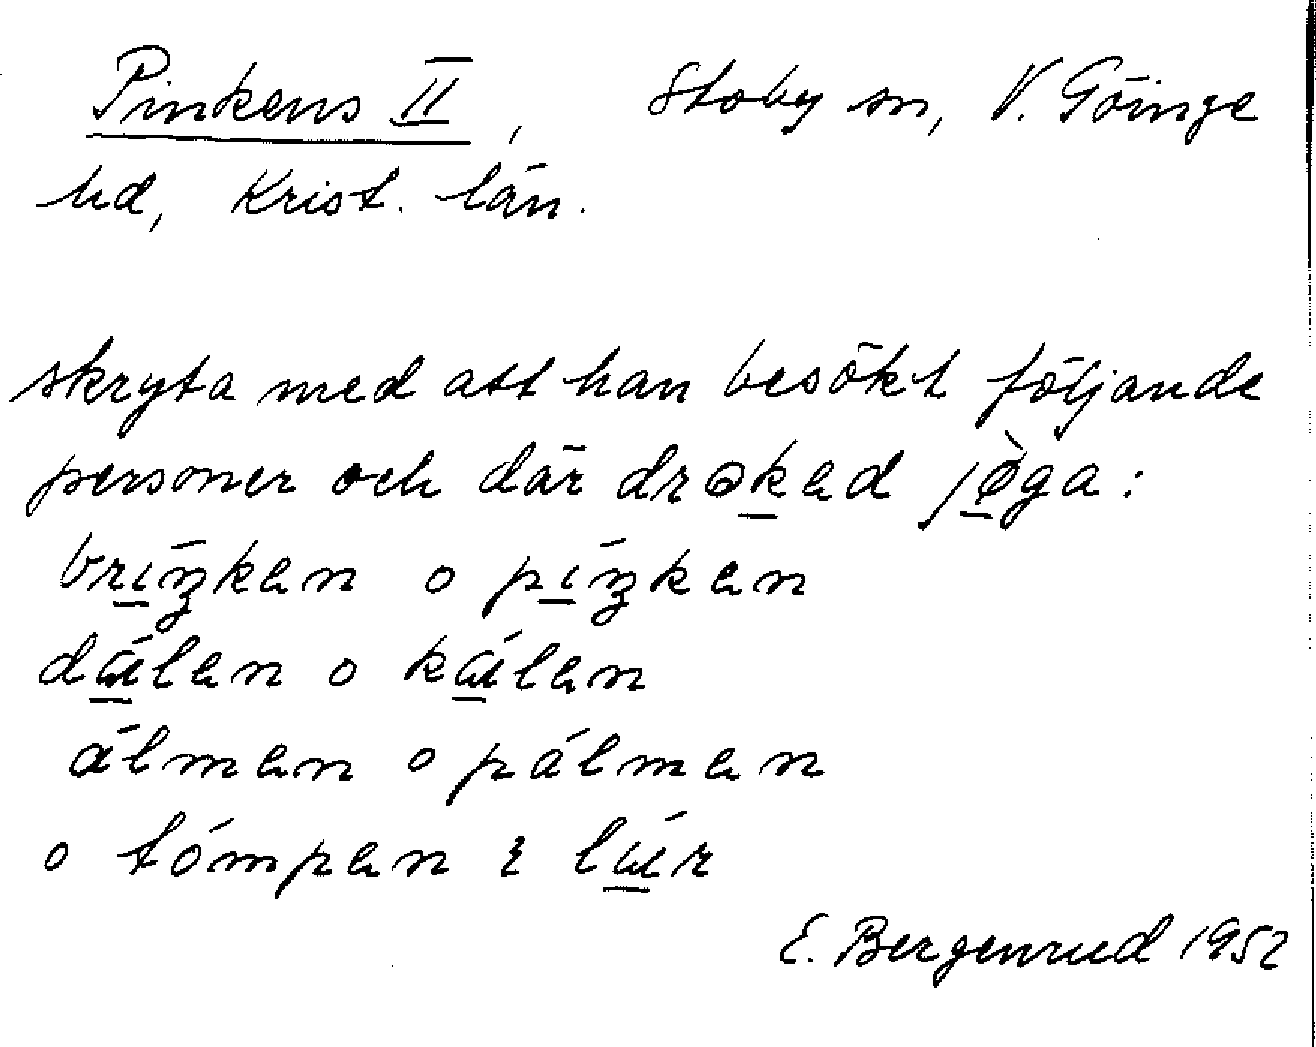 Pinkens II, Stoby sn, V. Göinge
hd, Krist. län.
skryta med att han besökt följande
personer och där drɵked jø̀ga:
brı́ŋken o pı́ŋken
dɑ́len o kɑ́len
álmen o pálmen
o tómpen ɿ lɑ́r
E. Bergenrud 1952